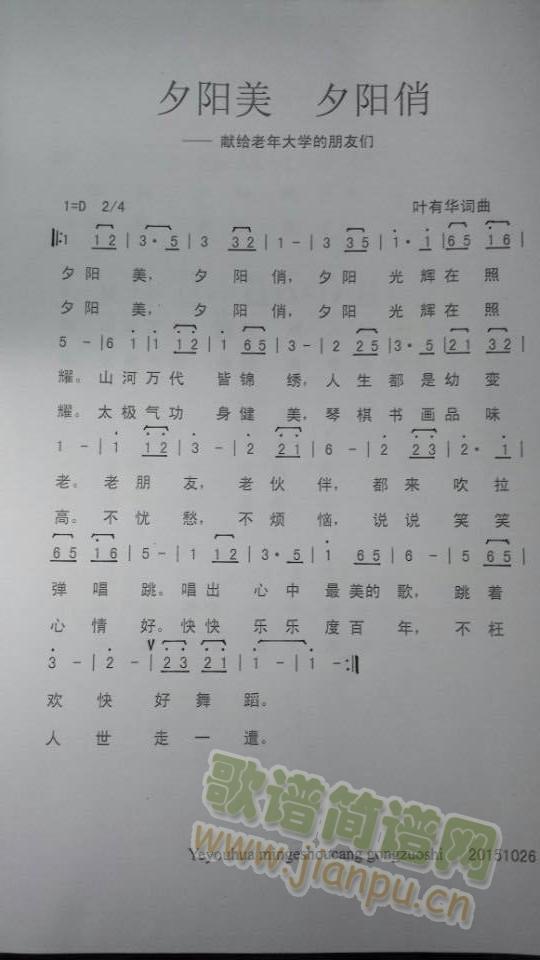 夕阳美 夕阳俏
—— 献给老年大学的朋友们
1=D 2/4 叶有华词曲
‖:1 1 2 | 3· 5 | 3 3 2 | 1 - | 3 3 5 | 1· 1 | 6 5 1 6 |
夕阳 美, 夕 阳俏,夕阳 光辉在 照
夕阳 美, 夕 阳俏,夕阳 光辉在 照
5 - | 6 1 | 1 1 2 | 1 6 5 | 3 - | 2 2 5 | 3· 5 | 2 1 3 2 |
耀。山河万代 皆锦 绣,人生都是幼 变
耀。太极气功 身健 美,琴棋书画品 味
1 - | 1 1 2 | 3 - | 2 2 1 | 6 - | 2 2 3 | 2· 1 |
老。老朋 友, 老伙 伴, 都来 吹拉
高。不忧 愁, 不烦 恼, 说说 笑笑
6 5 1 6 | 5 - | 1 1 2 | 3· 5 | 1 6 5 | 6 - | 5 6 5 |
弹唱 跳。唱出 心中 最美的歌, 跳着
心情 好。快快 乐乐 度百 年, 不枉
3 - | 2 - | 2 3 2 1 | 1 - | 1 - :‖
欢 快 好 舞 蹈。
人 世 走 一 遭。
歌谱简谱网
www.jianpu.cn
Yeyouhua mingeshoucang gongzuoshi 20151026